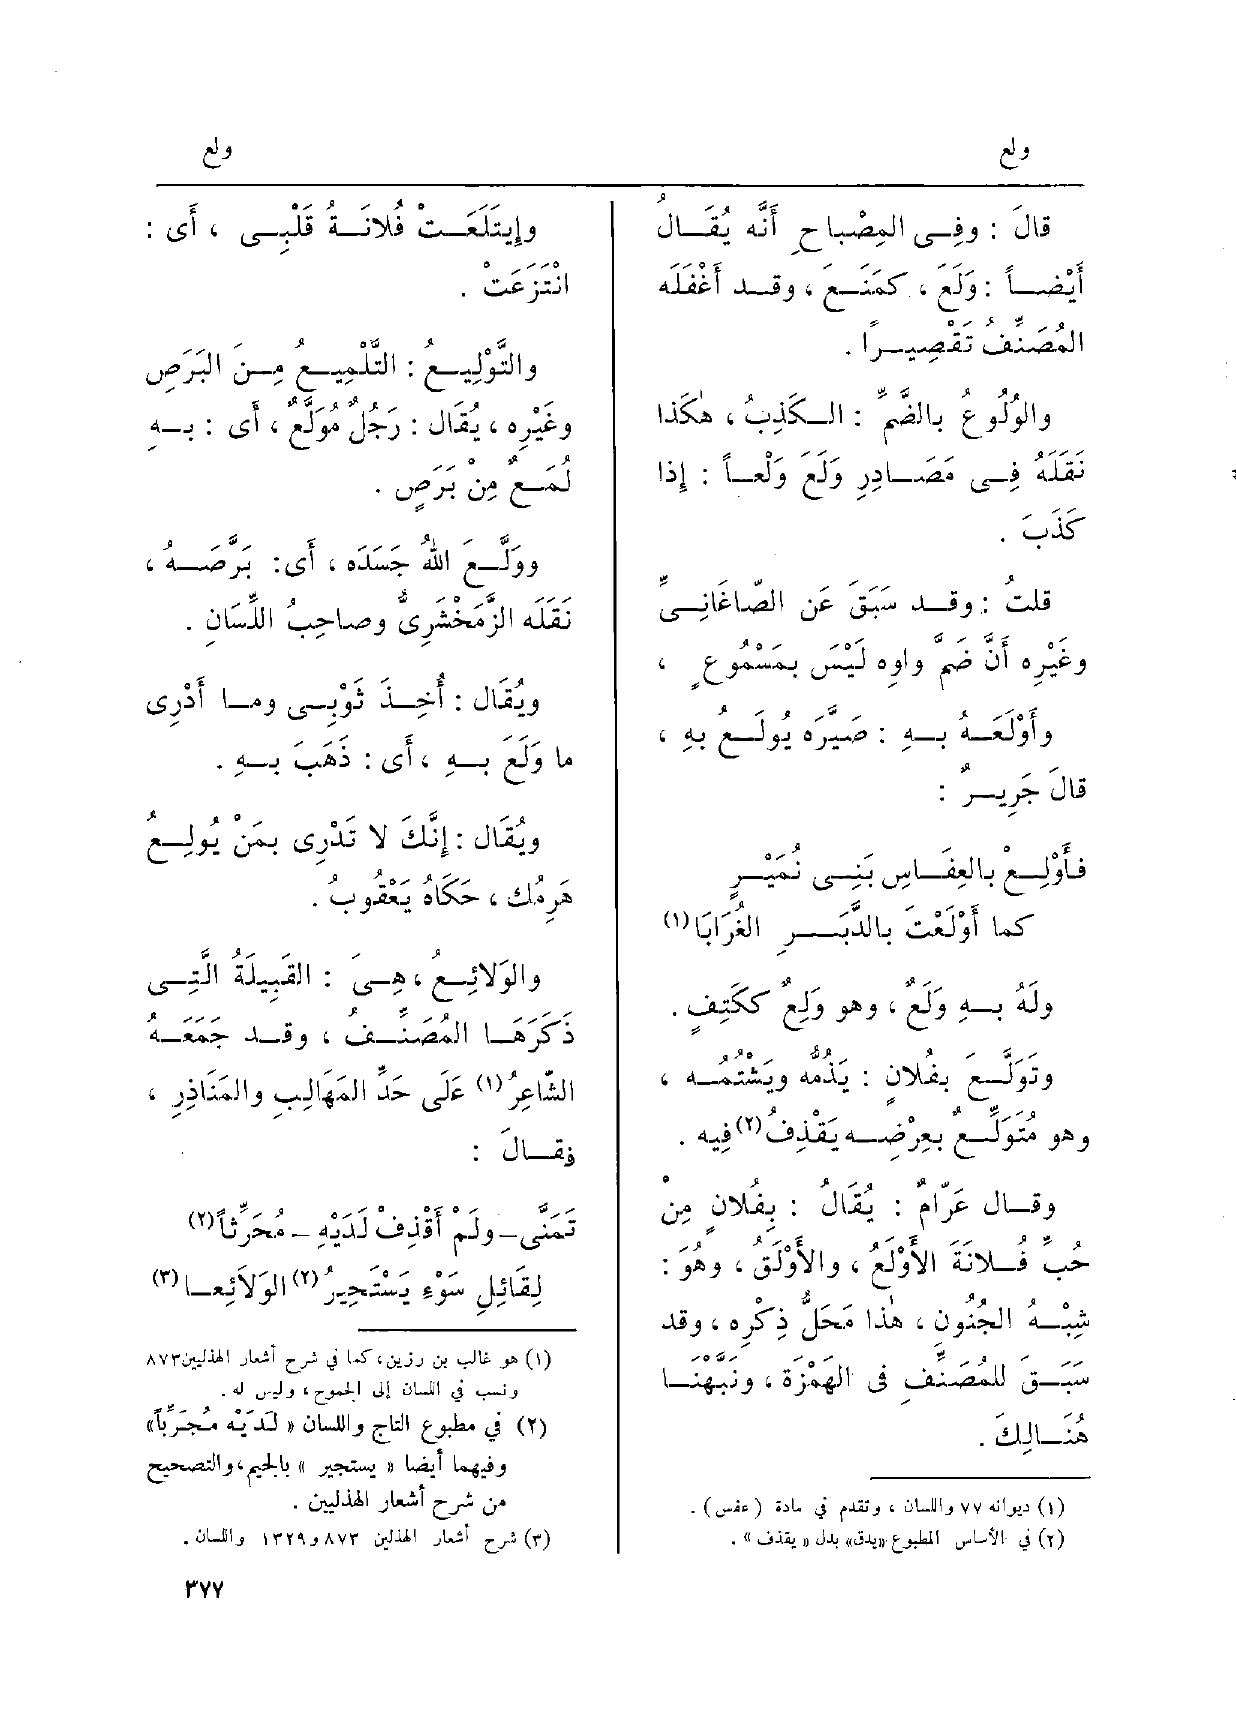 ولع
ولع
قالَ : وفِى المِصْباحِ أَنَّه يُقَالُ
أَيْضاً : وَلَعَ ، كمَنَعَ ، وقد أَغْفَلَه
المُصَنِّفُ تَقْصِيرًا .
والوُلُوعُ بالضَّمِّ : الكَذِبُ ، هٰكَذا
نَقَلَهُ فِى مَصَادِرِ وَلَعَ وَلْعاً : إذا
كَذَبَ .
قلتُ : وقد سَبَقَ عَن الصّاغَانِىِّ
وغَيْرِه أَنَّ ضَمَّ واوِه لَيْسَ بمَسْمُوعٍ ،
وأَوْلَعَهُ بهِ : صَيَّرَه يُولَعُ بهِ ،
قالَ جَرِيرٌ :
فأَوْلِعْ بالعِفَاسِ بَنِى نُمَيْرٍ
كما أَوْلَعْتَ بالدَّبَرِ الغُرَابَا(١)
ولَهُ بهِ وَلَعٌ ، وهو وَلِعٌ ككَتِفٍ .
وتَوَلَّعَ بفُلانٍ : يَذُمُّه ويَشْتُمُه ،
وهو مُتَوَلِّعٌ بعِرْضِه يَقْذِفُ(٢) فِيه .
وقال عَرّامٌ : يُقَالُ : بِفُلانٍ مِنْ
حُبِّ فُلانَةَ الأَوْلَعُ ، والأَوْلَقُ ، وهُوَ :
شِبْهُ الجُنُونِ ، هٰذا مَحَلُّ ذِكْرِه ، وقد
سَبَقَ للمُصَنِّفِ فى الهَمْزَةِ ، ونَبَّهْنَا
هُنَالِكَ .
(١) ديوانه ٧٧ واللسان ، وتقدم في مادة (عفس) .
(٢) في الأساس المطبوع «يدق» بدل « يقذف » .
وإِيتَلَعَتْ فُلانَةُ قَلْبِى ، أَى :
انْتَزَعَتْ .
والتَّوْلِيعُ : التَّلْمِيعُ مِن البَرَصِ
وغَيْرِه ، يُقَال : رَجُلٌ مُوَلَّعٌ ، أَى : بهِ
لُمَعٌ مِنْ بَرَصٍ .
ووَلَّعَ اللهُ جَسَدَه ، أَى: بَرَّصَهُ ،
نَقَلَه الزَّمَخْشَرِىُّ وصاحِبُ اللِّسَان .
ويُقَال : أُخِذَ ثَوْبِى وما أَدْرِى
ما وَلَعَ بهِ ، أَى : ذَهَبَ بهِ .
ويُقَال : إِنَّكَ لا تَدْرِى بمَنْ يُولِعُ
هَرِمُك ، حَكَاهُ يَعْقُوبُ .
والوَلائِعُ ، هِىَ : القَبِيلَةُ الَّتِى
ذَكَرَهَا المُصَنِّفُ ، وقد جَمَعَهُ
الشّاعِرُ(١) عَلَى حَدِّ المَهَالِبِ والمَنَاذِرِ ،
فقالَ :
تَمَنَّى - ولَمْ أَقْذِفْ لَدَيْهِ - مُحَرِّثاً(٢)
لِقَائِلِ سَوْءٍ يَسْتَحِيرُ(٢) الوَلائِعَا(٣)
(١) هو غالب بن رزين، كما في شرح أشعار الهذليين ٨٧٣
ونسب في اللسان إلى الجموح، وليس له .
(٢) في مطبوع التاج واللسان « لَدَيْه مُجَرِّباً»
وفيهما أيضا « يستجير » بالجيم، والتصحيح
من شرح أشعار الهذليين .
(٣) شرح أشعار الهذليين ٨٧٣ و١٣٢٩ واللسان .
٣٧٧